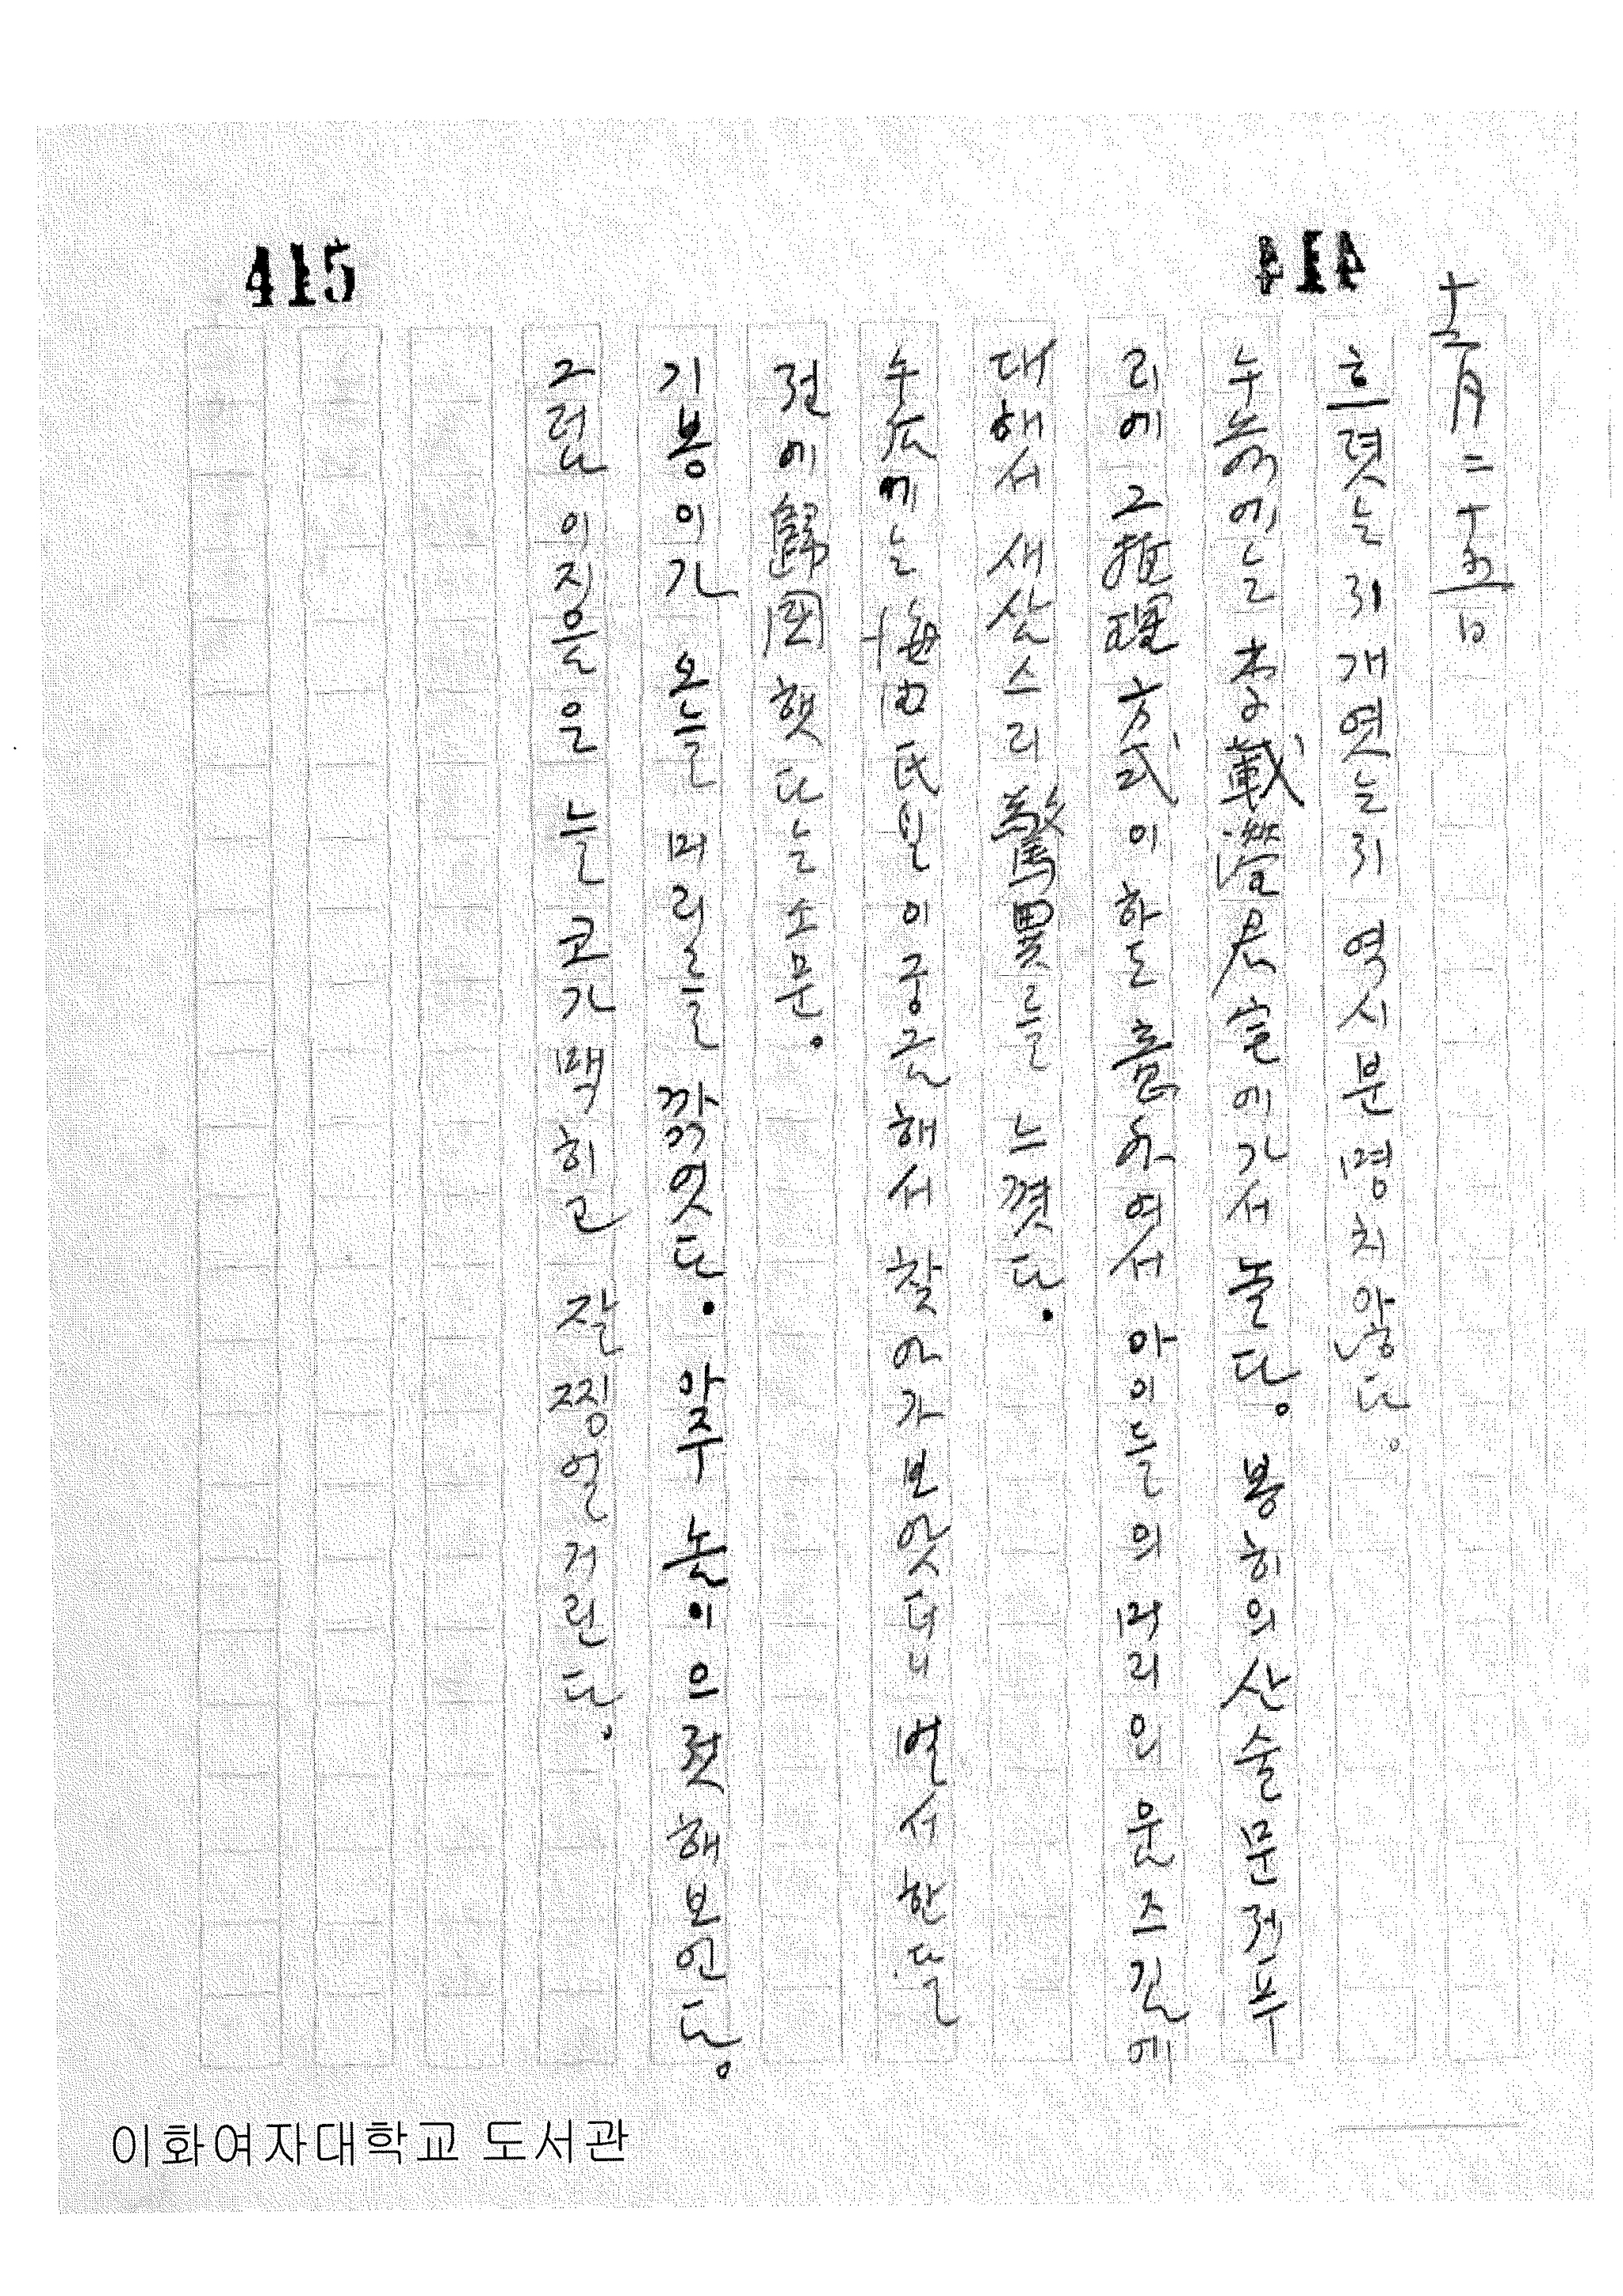 415
414
十二月二十五日
흐렷는지 개엿는지 역시 분명치 않다.
누늘에는 李載澄君 宅에 가서 놀다. 봉히의 산술문저푸
리에 그 推理方式이 하도 흠하여서 아이들의 머리인 운즈긴에
대해서 새삼스리 驚異를 느꼈다.
午后에는 海田氏일이 궁금해서 찾아가 보앗더니 벌서 한 달
전에 歸国햇다는 소문.
기봉이가 오늘 머리를 깎엇다. 아주 논이으젓해 보인다.
그럼 이지음은 늘 코가 맥히고 잘 찡얼거린다.
이화여자대학교 도서관